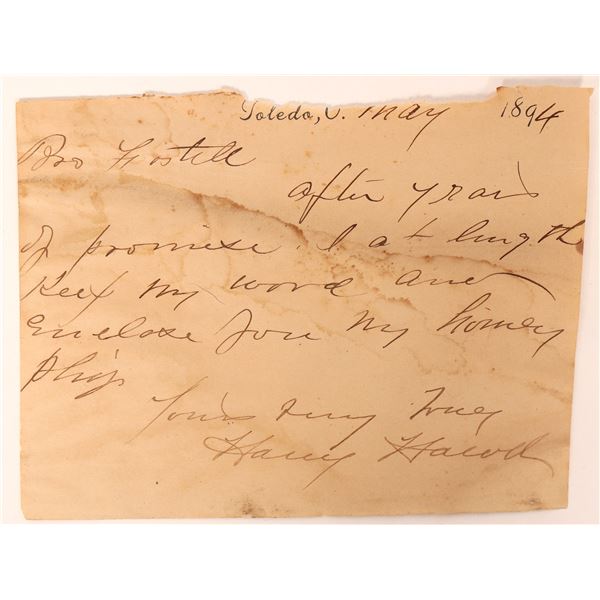 Toledo, O. May 1894
Bro
after years
of promise I at length
Keep my word and
Enclose you my homey
phiz
Yours very truly
Harry